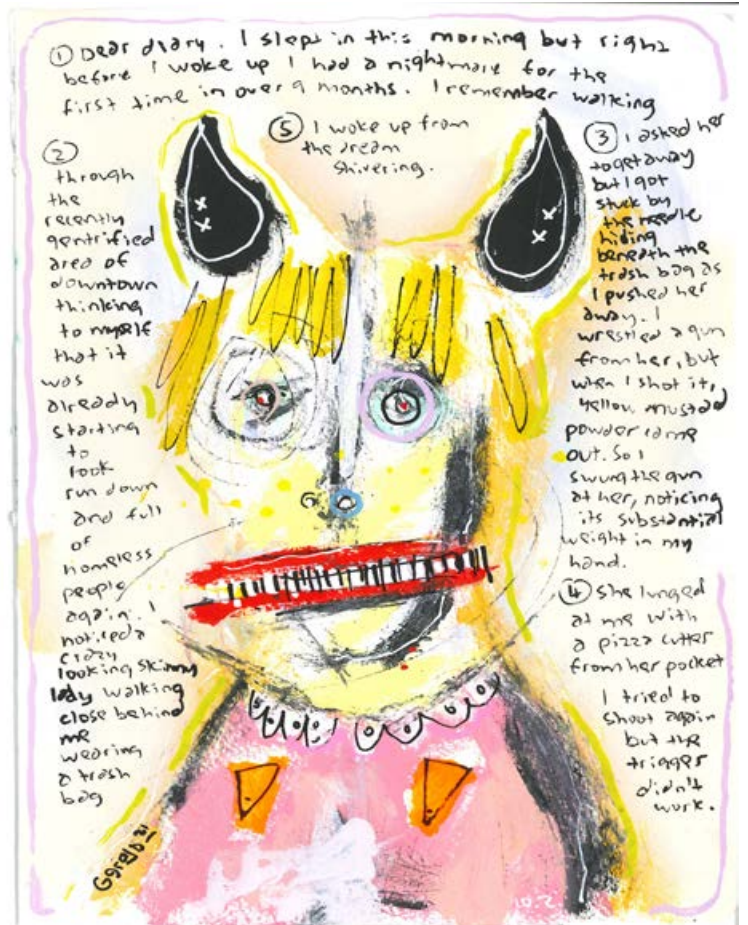 ① Dear diary. I slept in this morning but right
before I woke up I had a nightmare for the
first time in over 9 months. I remember walking
②
through
the
recently
gentrified
area of
downtown
thinking
to myself
that it
was
already
starting
to
look
run down
and full
of
homeless
people
again. I
noticed a
crazy
looking skinny
lady walking
close behind
me
wearing
a trash
bag
③ I asked her
to get away
but I got
stuck by
the needle
hiding
beneath the
trash bag as
I pushed her
away. I
wrestled a gun
from her, but
when I shot it,
yellow mustad
powder came
out. So I
swung the gun
at her, noticing
its substantial
weight in my
hand.
④ She lunged
at me with
a pizza cutter
from her pocket
I tried to
shoot again
but the
trigger
didn't
work.
⑤ I woke up from
the dream
shivering.